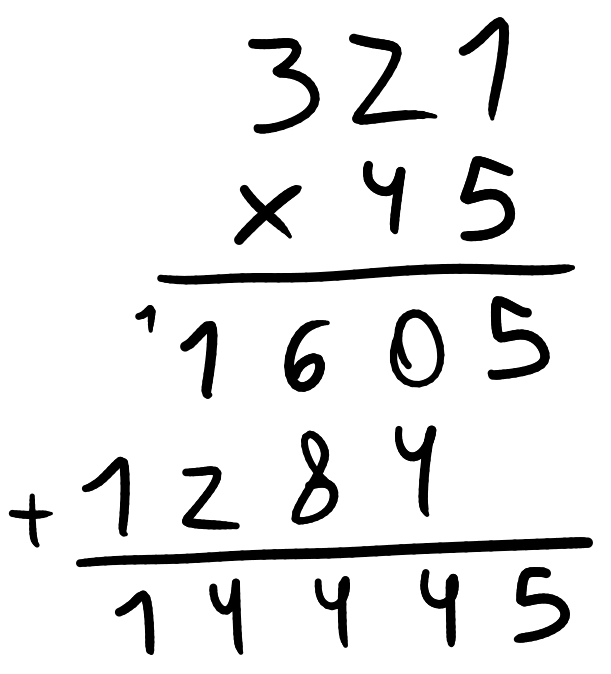 321
× 45
1
1605
+ 1284
14445